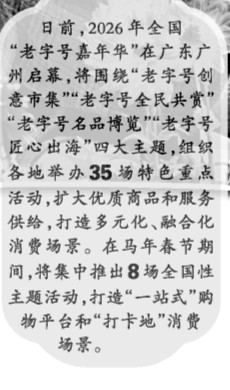 日前，2026年全国
“老字号嘉年华”在广东广
州启幕，将围绕“老字号创
意市集”“老字号全民共赏”
“老字号名品博览”“老字号
匠心出海”四大主题，组织
各地举办35场特色重点
活动，扩大优质商品和服务
供给，打造多元化、融合化
消费场景。在马年春节期
间，将集中推出8场全国性
主题活动，打造“一站式”购
物平台和“打卡地”消费
场景。